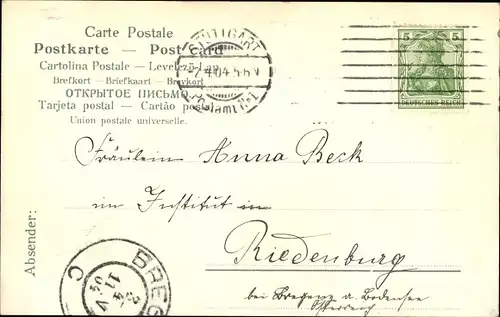 Carte Postale
Postkarte — Post card
Cartolina Postale — Levelező-Lap
Brefkort — Briefkaart — Brevkort
ОТКРЫТОЕ ПИСЬМО
Tarjeta postal — Cartão postal
Union postale universelle.
STUTTGART
5 5
DEUTSCHES REICH
Fräulein Anna Beck
im Institut in
Riedenburg
bei Bregenz a. Bodensee
Österreich
Absender:
BREG
C